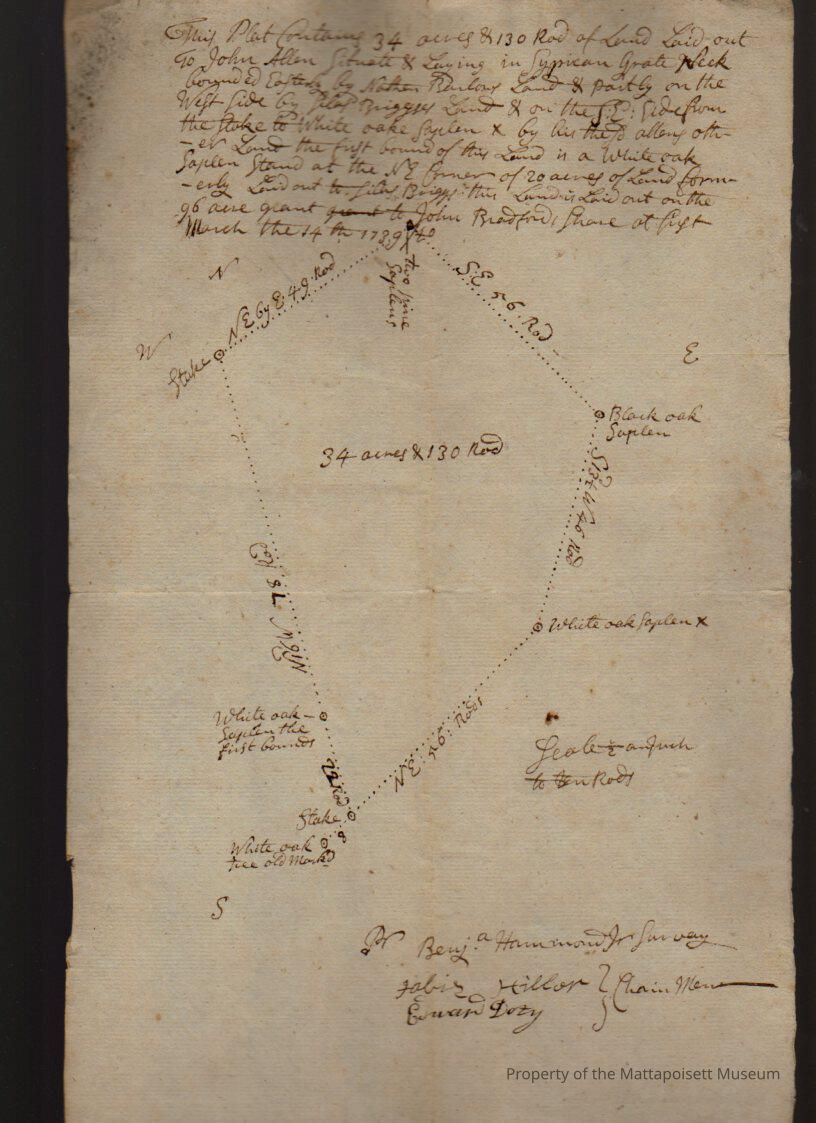 This Plat Contains 34 acres & 130 Rod of Land Laid out
To John Allen Situate & Laying in Sypican Grate Neck
bounded Easterly by Nathan Land & partly on the
West Side by Silas Briggs's Land & on the S:E: Side from
the Stake to White oake Saplen x by his the sd allens oth-
-er Land the first bound of this Land is a White oak
Saplen Stand at the NE Corner of 20 acres of Land form-
-erly Laid out to Silas Briggs: this Land is Laid out on the
96 acre grant to John Bradfords Share at first
March the 14th 1739
N
NE by E: 49: Rod
two pine
Saplens
S:E 56: Rod
W
E
Stake
Black oak
Saplen
34 acres & 130 Rod
W 46 Rod
78 Rod
White oak Saplen x
White oak
Saplen the
first bounds
NE: 56: Rods
Scale ½ an Inch
to ten Rods
22 Rod
Stake
8
White oak
tree old Markd
S
Pr Benja Hammond Jr Survay
Jabiz Hiller } Chain Men
Edward Doty
Property of the Mattapoisett Museum